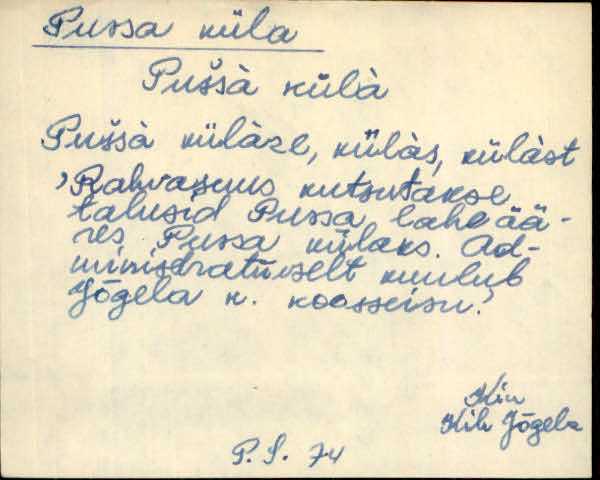 Pussa küla
Pušsà külà
Pušsà külàze, külàs, külàst
'Rahvasuus kutsutakse
talusid Pussa lahe ää-
res Pussa külaks. Ad-
ministratiivselt kuulub
Jõgela k. koosseisu.'
Kih Jõgela
P.S. 74